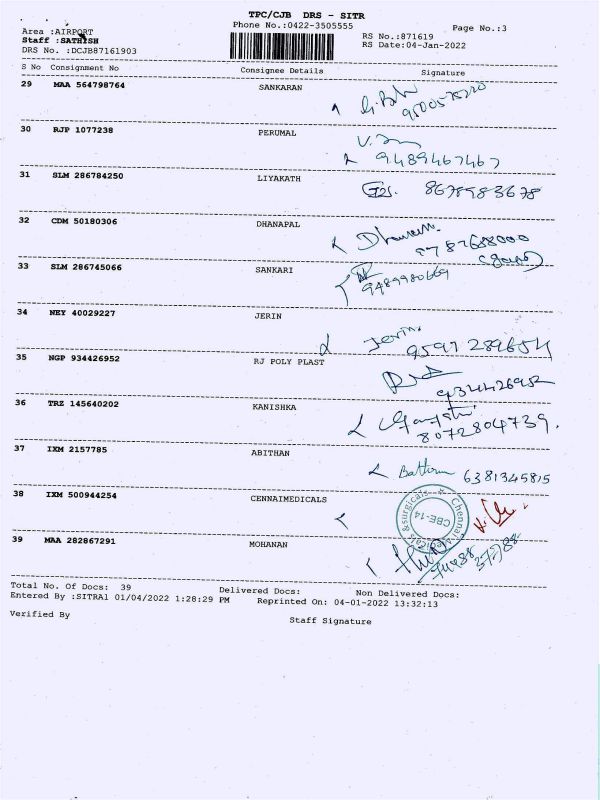 TPC/CJB DRS - SITR
Phone No.:0422-3505555
Page No.:3
Area :AIRPORT
Staff :SATHISH
DRS No. :DCJB87161903
RS No.:871619
RS Date:04-Jan-2022
S No Consignment No Consignee Details Signature
29 MAA 564798764 SANKARAN
30 RJP 1077238 PERUMAL
9489467467
31 SLM 286784250 LIYAKATH
8678983678
32 CDM 50180306 DHANAPAL
9787688000
33 SLM 286745066 SANKARI
9489980669
34 NEY 40029227 JERIN
Jerin
9597289654
35 NGP 934426952 RJ POLY PLAST
934426952
36 TRZ 145640202 KANISHKA
8072804739.
37 IXM 2157785 ABITHAN
6381345815
38 IXM 500944254 CENNAIMEDICALS
Chennai Medicals & Surgicals
CBE-14
39 MAA 282867291 MOHANAN
Total No. Of Docs: 39 Delivered Docs: Non Delivered Docs:
Entered By :SITRA1 01/04/2022 1:28:29 PM Reprinted On: 04-01-2022 13:32:13
Verified By Staff Signature